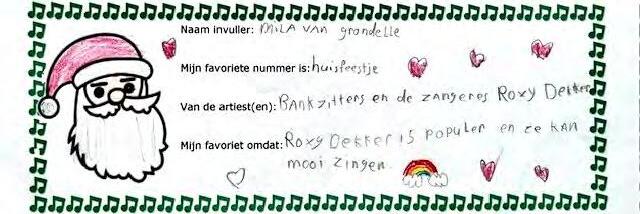 Naam invuller: MILA VAN grondelle
Mijn favoriete nummer is: huisfeestje
Van de artiest(en): Bankzitters en de zangeres Roxy Dekker
Mijn favoriet omdat: Roxy Dekker is populer en ze kan
mooi zingen.